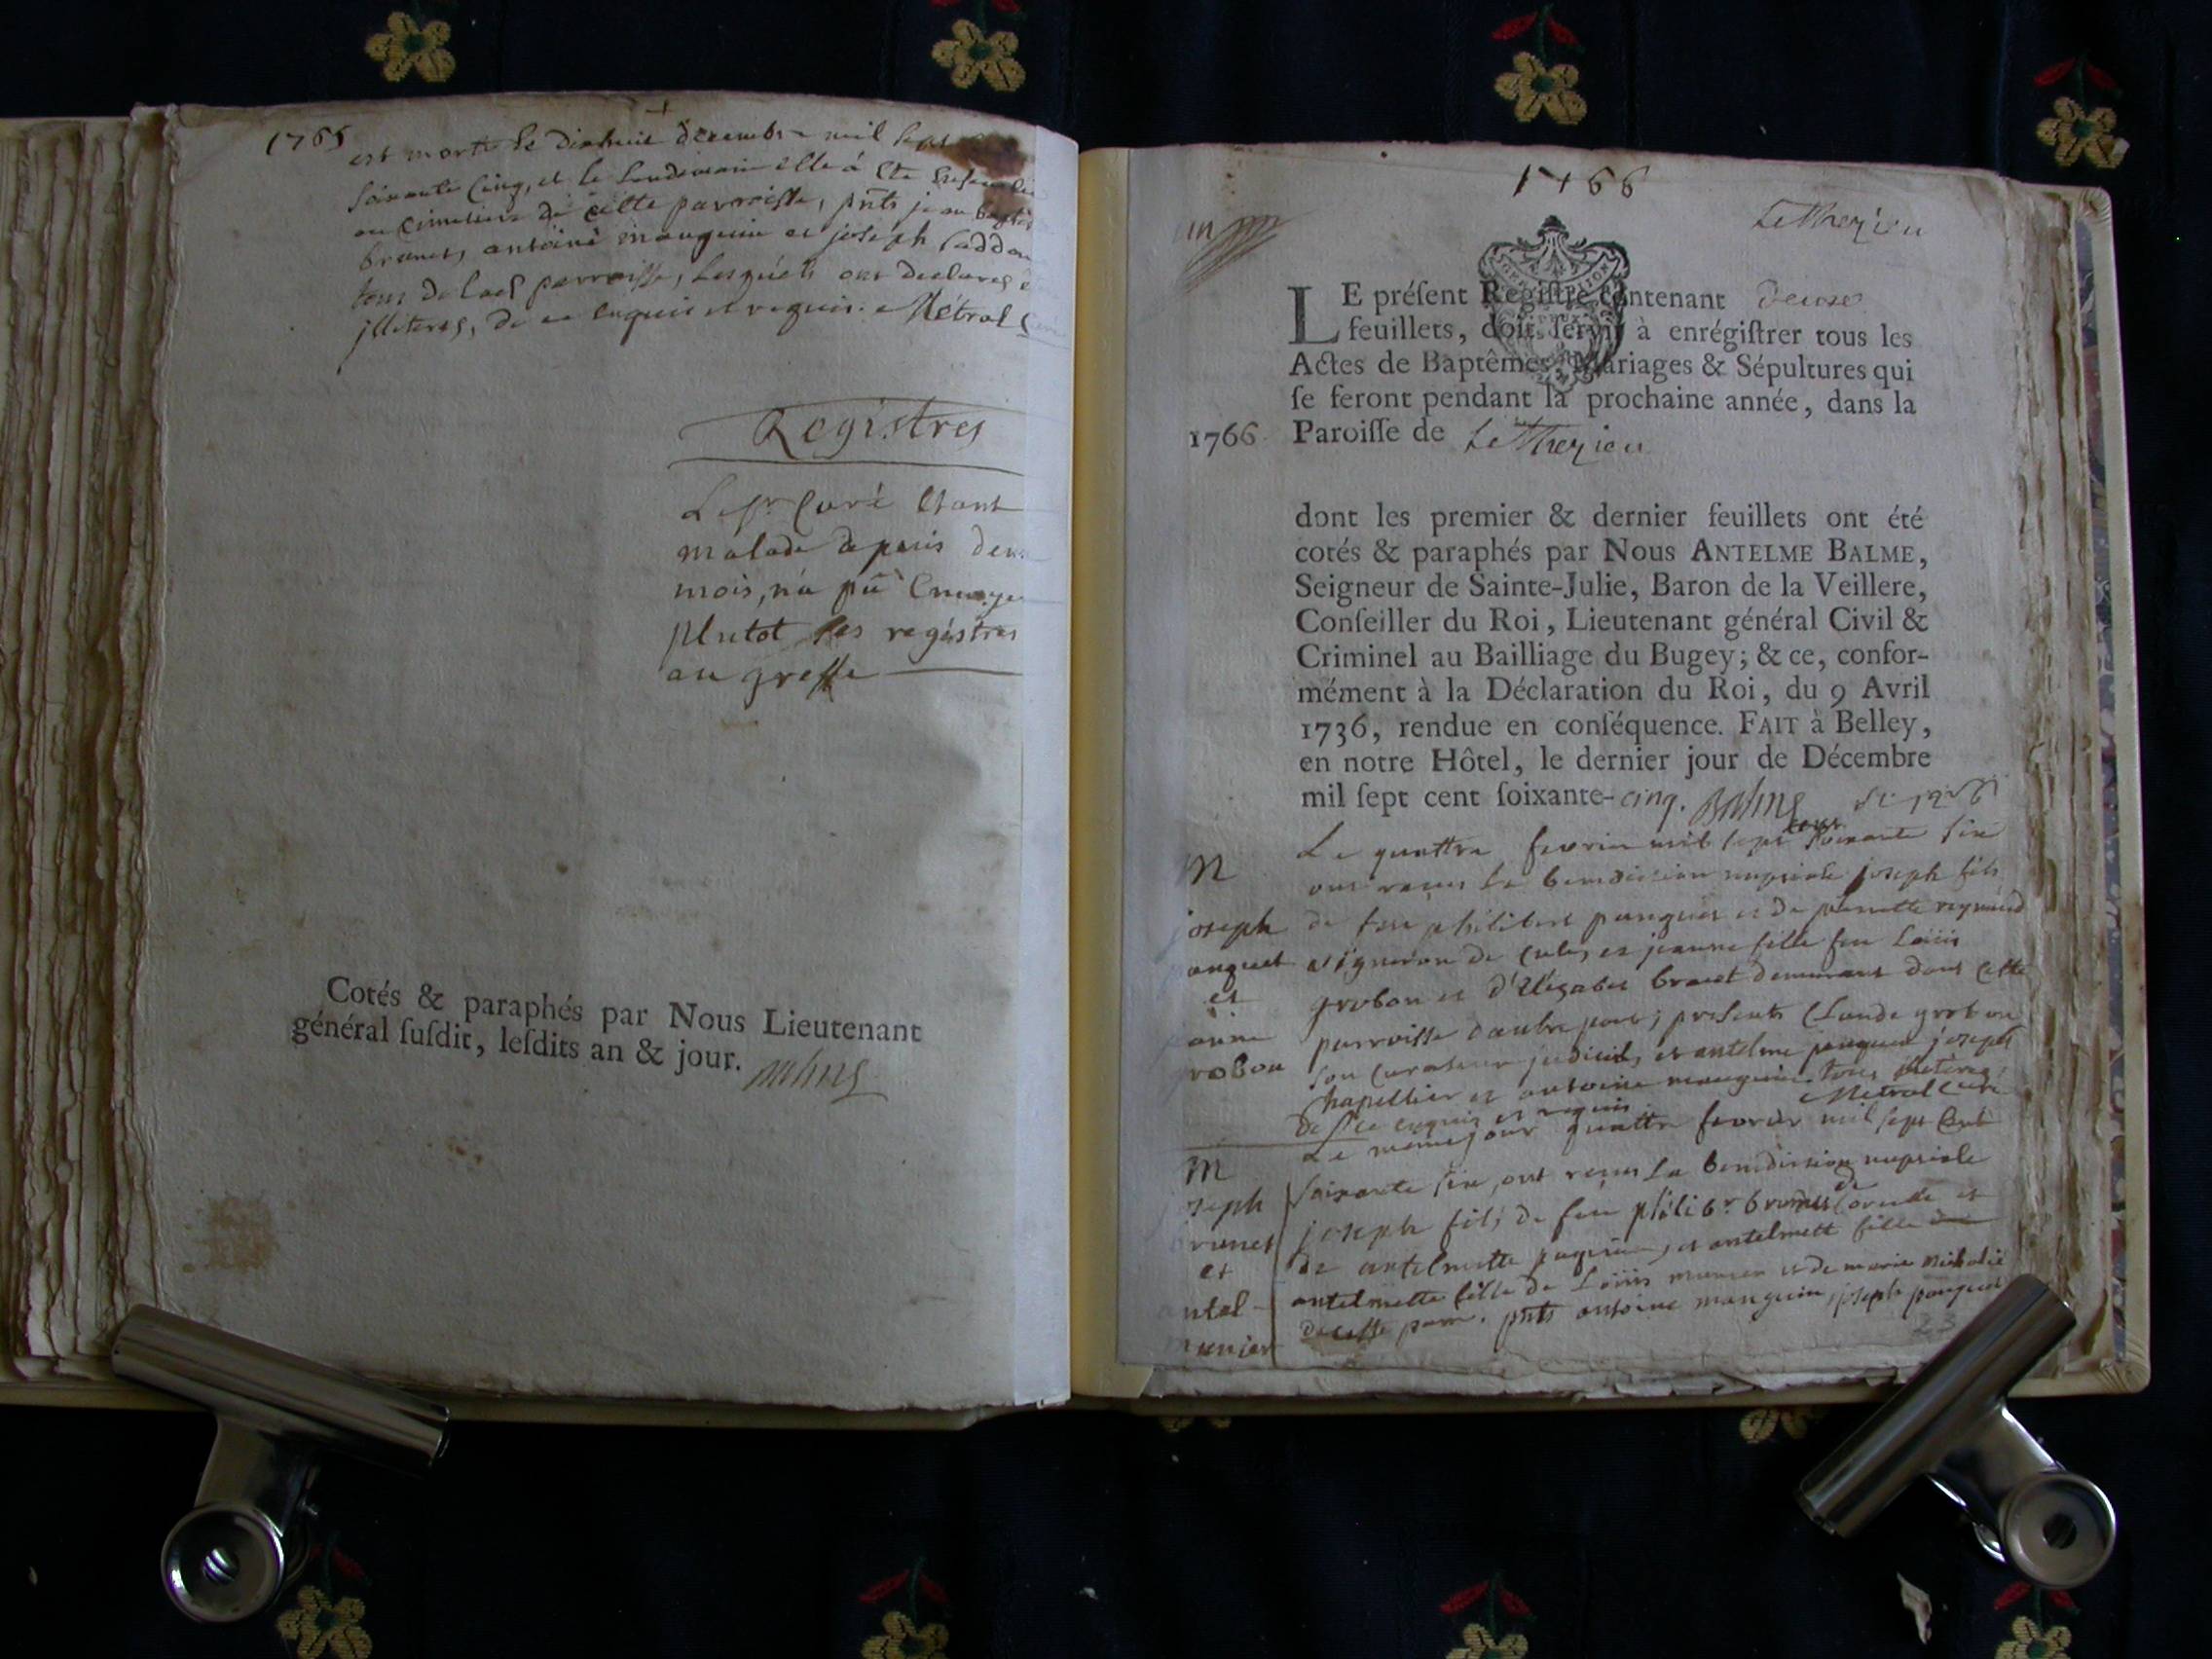 1765
est morte le dixhuit décembre mil sept
soixante cinq, et le lendemain elle à été
au cimetiere de cette parroisse, pnts jean baptiste
brunet, antoine mauguin et joseph
tous de lad parroisse, lesquels ont declarés
illiteres, de ce enquis et requis. Métral
Registres
Le sr Curé étant
malade depuis deux
mois, n'a pû Envoyer
plutot les registres
au greffe
Cotés & paraphés par Nous Lieutenant
général susdit, lesdits an & jour.
1766
Le Thezieu
LE présent Registre contenant deuxe
feuillets, doit servir à enrégistrer tous les
Actes de Baptêmes, Mariages & Sépultures qui
se feront pendant la prochaine année, dans la
1766 Paroisse de Le Thezieu
dont les premier & dernier feuillets ont été
cotés & paraphés par Nous ANTELME BALME,
Seigneur de Sainte-Julie, Baron de la Veillere,
Conseiller du Roi, Lieutenant général Civil &
Criminel au Bailliage du Bugey; & ce, confor-
mément à la Déclaration du Roi, du 9 Avril
1736, rendue en conséquence. FAIT à Belley,
en notre Hôtel, le dernier jour de Décembre
mil sept cent soixante-cinq. Balme
M
joseph
et
grobon
Le quattre fevrier mil sept cent soixante six
ont reçus la benediction nuptiale joseph fils
de feu philibert panguet et de pernette reymond
vigneron de et jeanne fille feu Loüis
grobon et d'Elizabet demeurant dans cette
parroisse d'autre part; presents Claude grobon
son curateur judiciel, et antelme panguet joseph
chapellier et antoine mauguin tous illiteres
de ce enquis et requis. Metral curé
M
joseph
brunet
et
antel-
munier
Le meme jour quattre fevrier mil sept cent
soixante six, ont reçus la benediction nuptiale
joseph fils de feu philibt brunet de et
de antelmette et antelmett fille
antelmette fille de Loüis munier et de marie
de cette parr. pnts antoine mauguin, joseph panguet
23